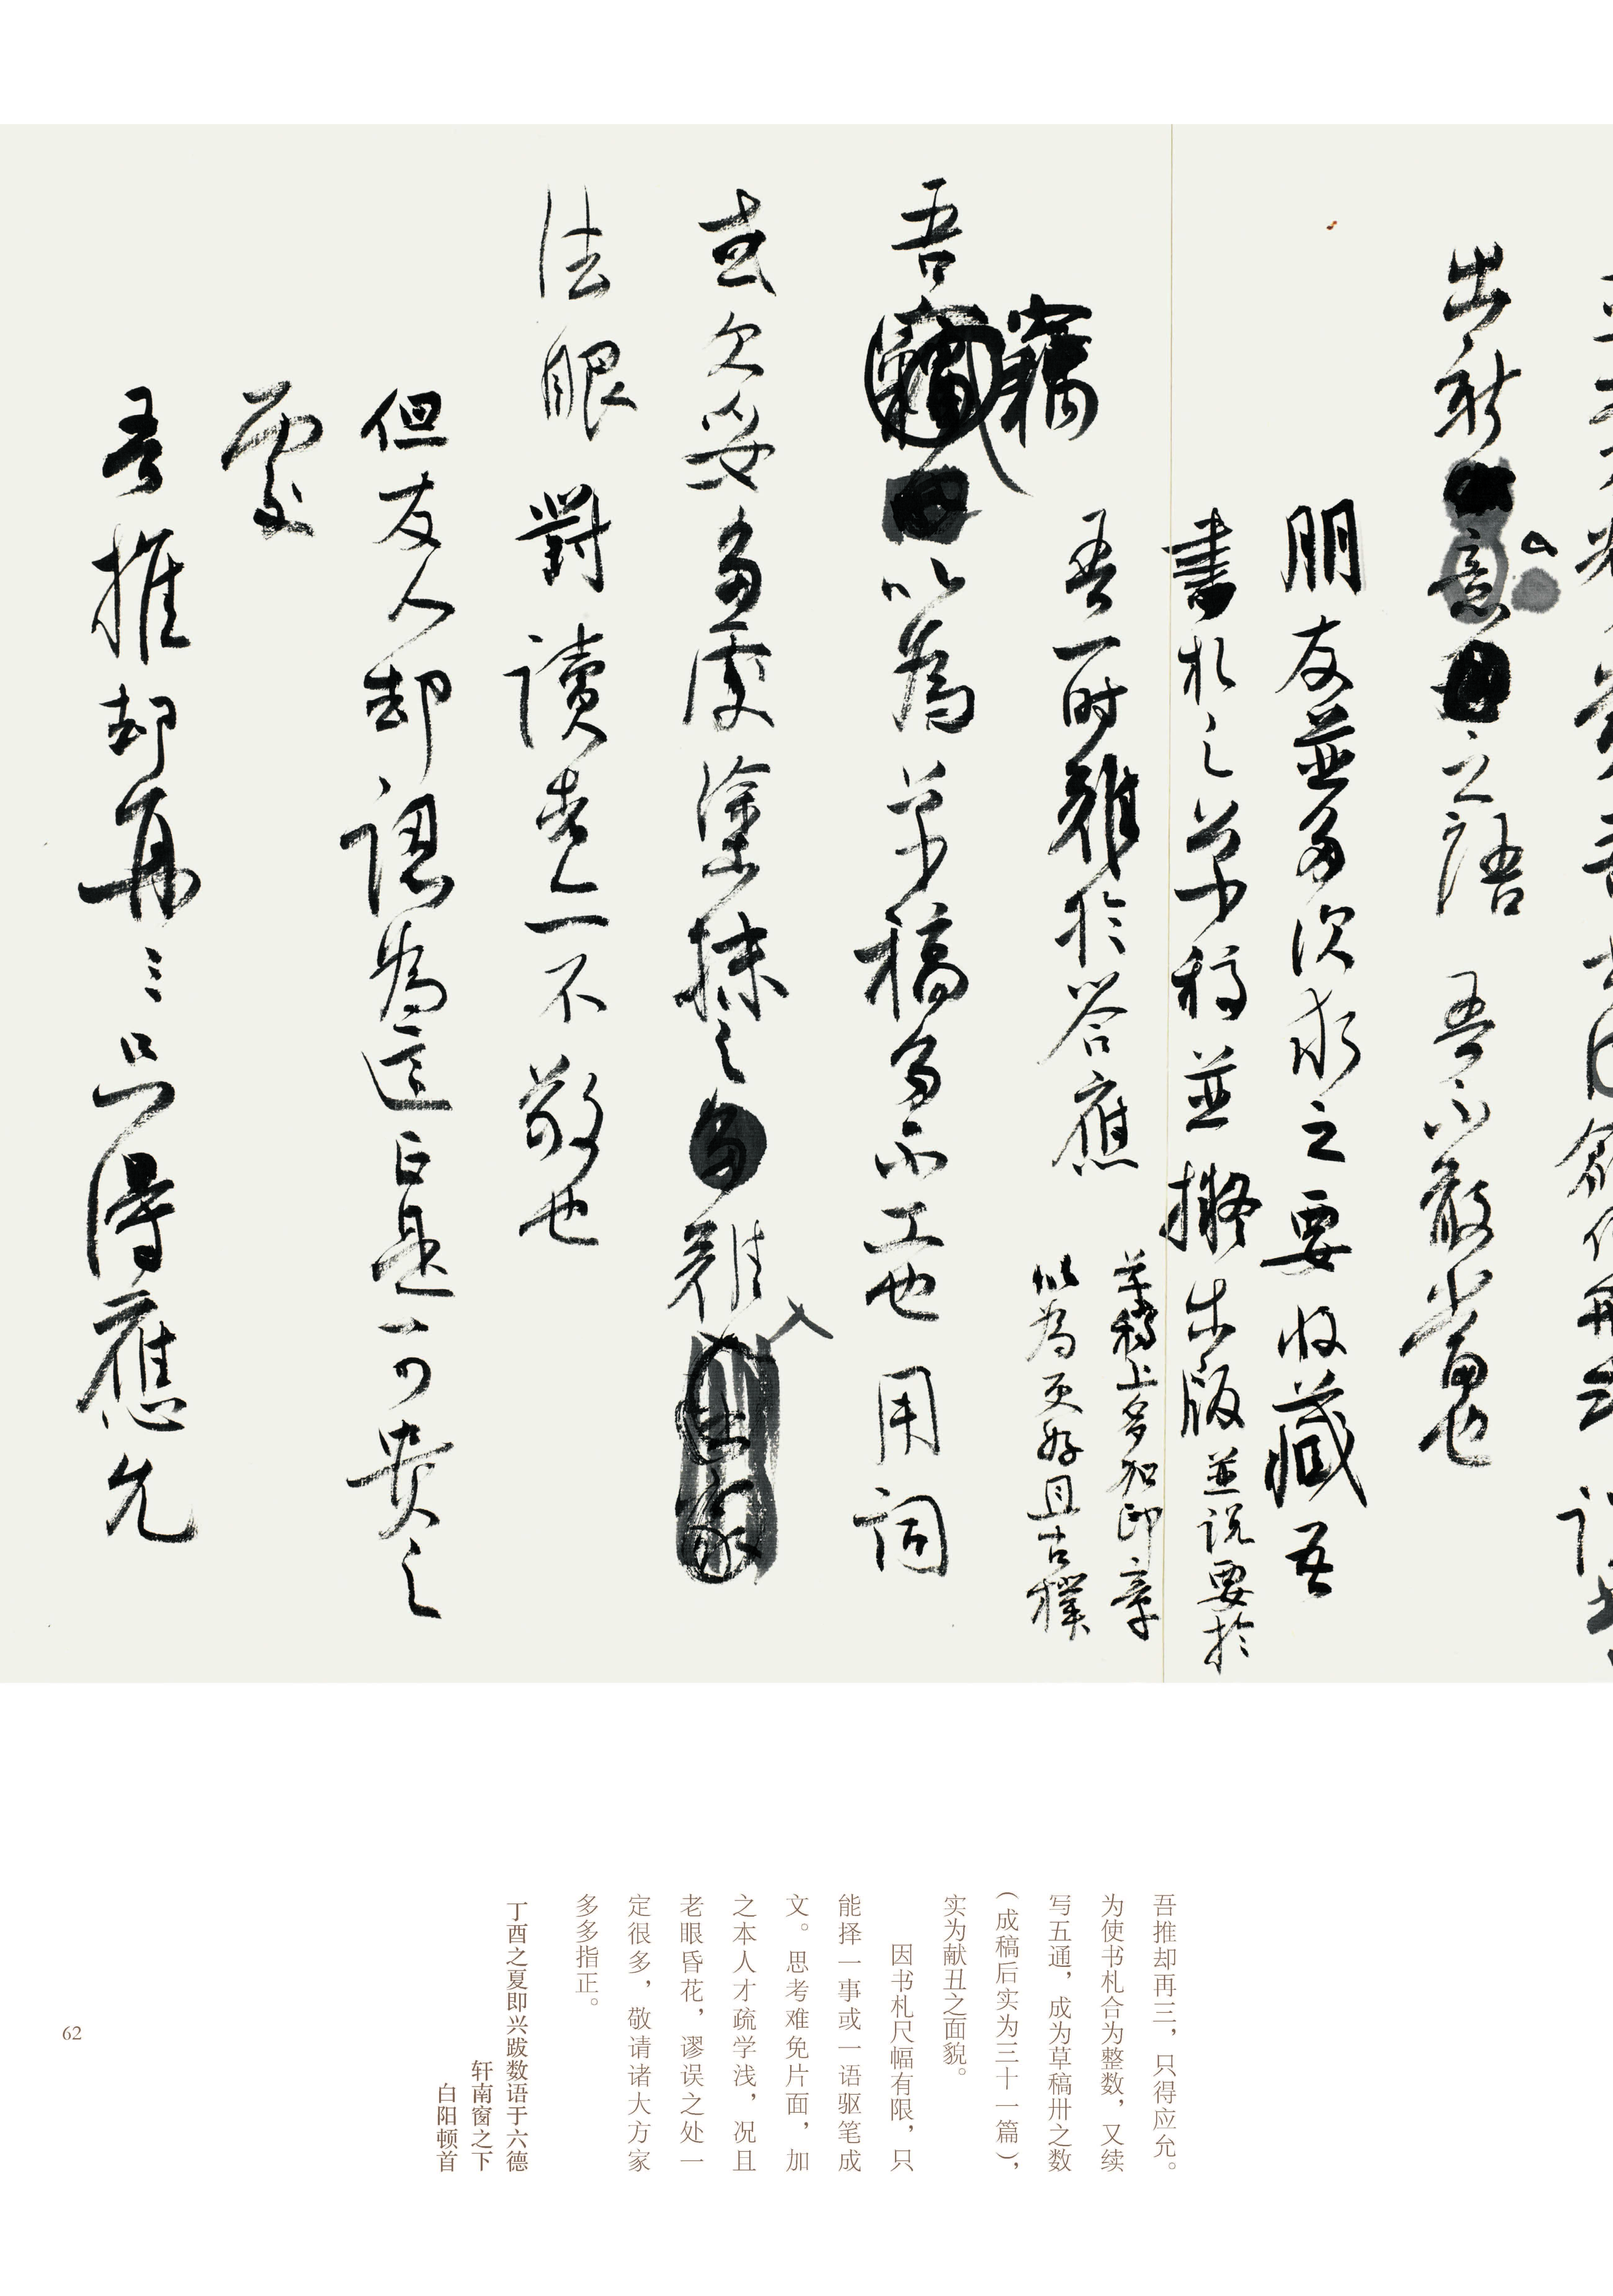 出新意之語 吾不敢當也
朋友並多次求之要收藏吾
書札之草稿並擬出版並説要於
草稿上多加印章
以為更好且古樸
吾一时難於答應
竊
吾以為草稿多不工也 用詞
或欠妥多處塗抹之難
法眼 對讀者亦不敬也
但友人却認為這正是可貴之
處
吾推却再三只得應允
吾推却再三，只得应允。
为使书札合为整数，又续
写五通，成为草稿卅之数
（成稿后实为三十一篇），
实为献丑之面貌。
因书札尺幅有限，只
能择一事或一语驱笔成
文。思考难免片面，加
之本人才疏学浅，况且
老眼昏花，谬误之处一
定很多，敬请诸大方家
多多指正。
丁酉之夏即兴跋数语于六德
轩南窗之下
白阳顿首
62